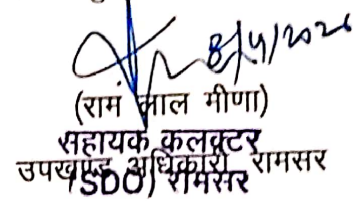 8/4/2026
(राम लाल मीणा)
सहायक कलक्टर
उपखण्ड अधिकारी रामसर
(SDO) रामसर